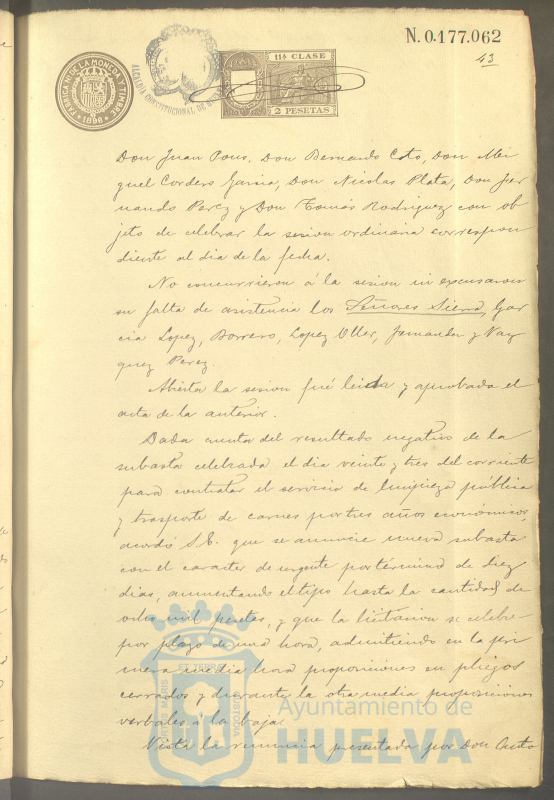 N. 0.177.062
43
FABRICA N. DE LA MONEDA Y TIMBRE
1898
ALCALDIA CONSTITUCIONAL DE
11ª CLASE
2 PESETAS
Don Juan Pons, Don Bernardo Coto, Don Mi
guel Cordero Garcia, Don Nicolas Plata, Don Fer
nando Perez y Don Tomás Rodriguez con ob
jeto de celebrar la sesion ordinaria correspon
diente al dia de la fecha.
No concurrieron á la sesion ni excusaron
su falta de asistencia los Señores Sierra, Gar
cia Lopez, Borrero, Lopez Oller, y Vaz
quez Perez.
Abierta la sesion fué leida y aprobada el
acta de la anterior.
Dada cuenta del resultado negativo de la
subasta celebrada el dia veinte y tres del corriente
para contratar el servicio de limpieza pública
y trasporte de carnes por tres años económicos,
acordó S.E. que se anuncie nueva subasta
con el caracter de urgente por término de diez
dias, aumentando el tipo hasta la cantidad de
ocho mil pesetas, y que la licitacion se celebre
por plazo de una hora, admitiendo en la pri
mera media hora proposiciones en pliegos
cerrados y durante la otra media proposiciones
verbales á la baja.
Vista la renuncia presentada por Don Anto
Ayuntamiento de
HUELVA
PORTUS MARIS
ET TERRÆ
CUSTODIA